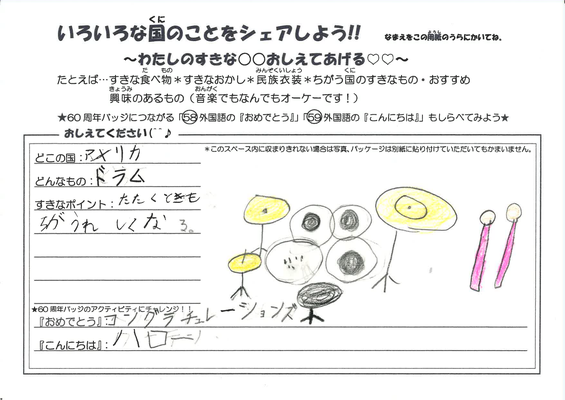 いろいろな国のことをシェアしよう!!
くに
なまえをこの用紙のうらにかいてね。
～わたしのすきな○○おしえてあげる♡♡～
たとえば…すきな食べ物＊すきなおかし＊民族衣装＊ちがう国のすきなもの・おすすめ
た もの みんぞくいしょう くに
きょうみ おんがく
興味のあるもの（音楽でもなんでもオーケーです！）
★60周年バッジにつながる「58外国語の『おめでとう』」「59外国語の『こんにちは』」もしらべてみよう★
おしえてください(^^♪
どこの国：アメリカ
＊このスペース内に収まりきれない場合は写真、パッケージは別紙に貼り付けていただいてもかまいません。
どんなもの：ドラム
すきなポイント：たたくときも
ちがうれしくなる。
★60周年バッジのアクティビティにチャレンジ！！
『おめでとう』：コングラチュレーションズ
『こんにちは』：ハロー